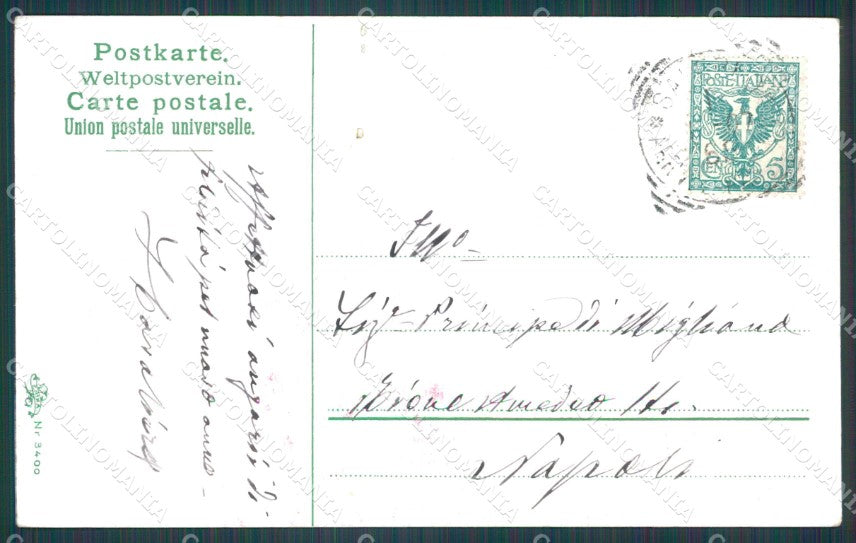 Postkarte.
Weltpostverein.
Carte postale.
Union postale universelle.
Affettuosi auguri di
felicità pel nuovo anno
Nr 3400
POSTE ITALIANE
5
Illo
Sig. Principe di Migliano
Amedeo
Napoli
CARTOLINOMANIA